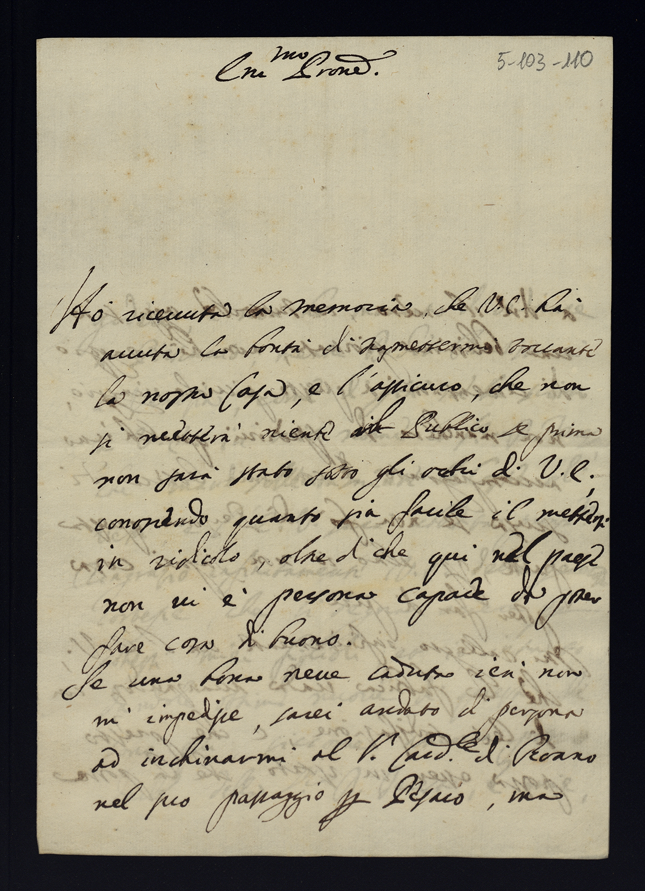 5-103-110
mo
Em Prone.
Hò ricevuta la memoria, che V.E. hà
avuta la bontà di trasmettermi toccante
la nostra Casa, e l'assicuro, che non
si metterà niente al Publico se prima
non sarà stato sotto gli occhi di V.E.,
conoscendo quanto sia facile il mettersi
in ridicolo, oltre di che qui nel paese
non vi è persona capace da poter
fare cosa di buono.
Se una bona neve caduta ieri non
mi impedisse, sarei andato di persona
ad inchinarmi al Sr. Card.le di
nel suo passaggio per Pesaro, ma